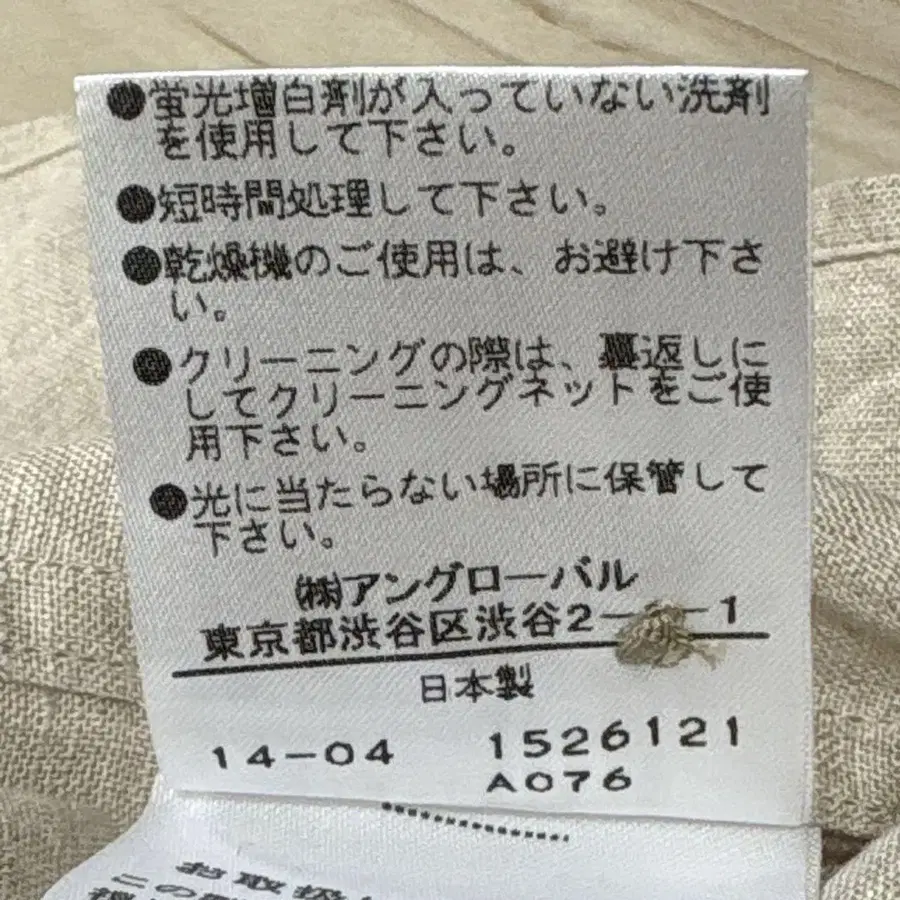 ●蛍光増白剤が入っていない洗剤
を使用して下さい。
●短時間処理して下さい。
●乾燥機のご使用は、お避け下さ
い。
●クリーニングの際は、裏返しに
してクリーニングネットをご使
用下さい。
●光に当たらない場所に保管して
下さい。
㈱アングローバル
東京都渋谷区渋谷2-
-1
日本製
14-04 1526121
A076
お取扱
この